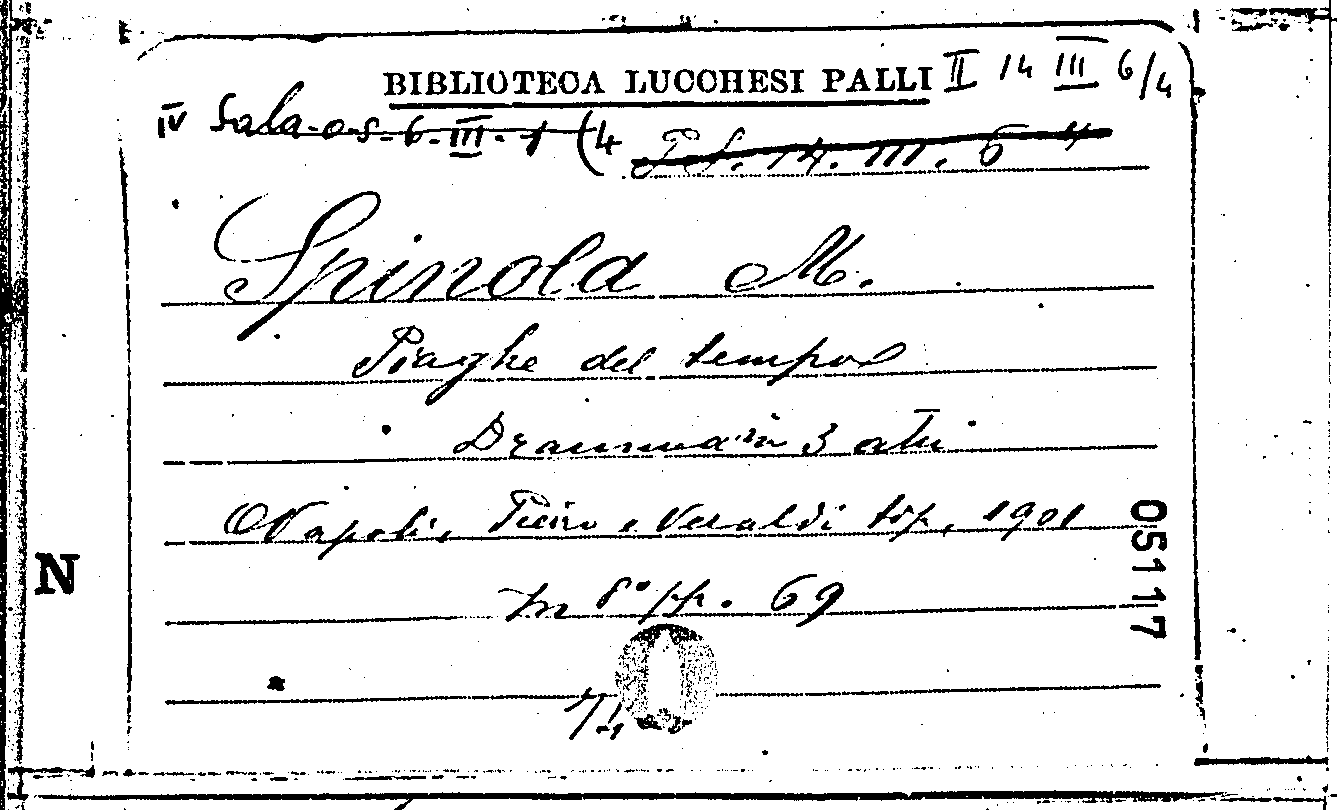 BIBLIOTECA LUCCHESI PALLI II 14 III 6/4
IV Sala-o-s-6-III-1 (4
14. III. 6 4
Spinola M.
Piaghe del tempo
Dramma in 3 atti
Napoli, Pierro e Veraldi tip, 1901
in 8° pp. 69
05117
N